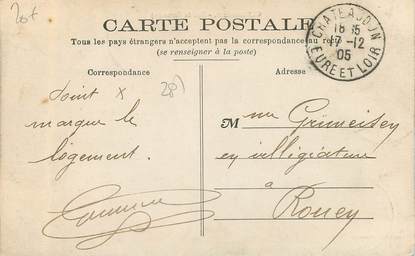 20f
CARTE POSTALE
Tous les pays étrangers n'acceptent pas la correspondance au recto
(se renseigner à la poste)
CHATEAUDUN
18 35
7-12
05
EURE ET LOIR
Correspondance
Adresse
28)
Point X
marque le
logement.
Mme Grimeisen
en villégiature
à
Rouey